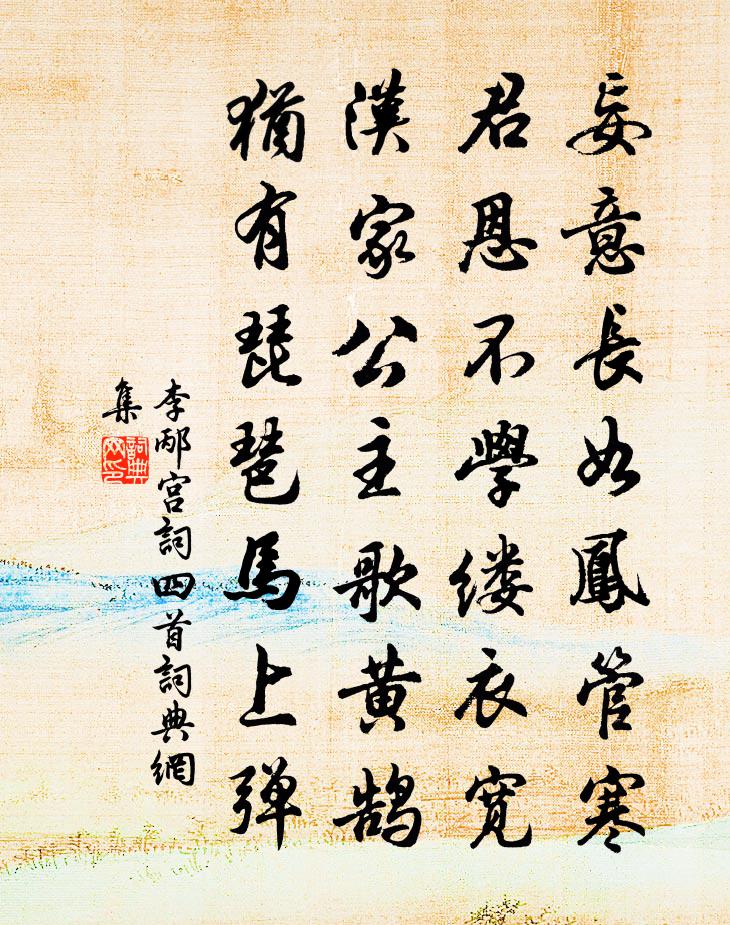 妾意長如鳳管寒
君恩不學缕衣寬
漢家公主歌黄鹄
猶有琵琶馬上弹
李邴宫詞四首詞典網
集
詞典网印